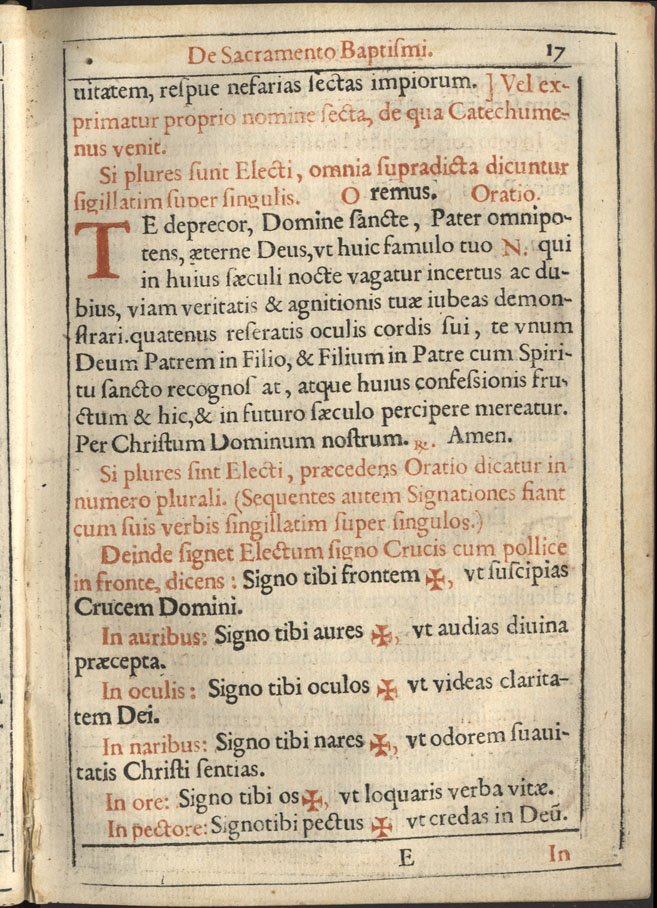 De Sacramento Baptiſmi. 17
uitatem, reſpue nefarias ſectas impiorum. ] Vel ex-
primatur proprio nomine ſecta, de qua Catechume-
nus venit.
Si plures ſunt Electi, omnia ſupradicta dicuntur
sigillatim ſuper ſingulis. Oremus. Oratio.
TE deprecor, Domine ſancte, Pater omnipo-
tens, æterne Deus, vt huic famulo tuo N. qui
in huius ſæculi nocte vagatur incertus ac du-
bius, viam veritatis & agnitionis tuæ iubeas demon-
ſtrari. quatenus reſeratis oculis cordis ſui, te vnum
Deum Patrem in Filio, & Filium in Patre cum Spiri-
tu ſancto recognoſ at, atque huius confeſsionis fru-
ctum & hic, & in futuro ſæculo percipere mereatur.
Per Chriſtum Dominum noſtrum. ℟. Amen.
Si plures ſint Electi, præcedens Oratio dicatur in
numero plurali. (Sequentes autem Signationes fiant
cum ſuis verbis ſingillatim ſuper ſingulos.)
Deinde ſignet Electum ſigno Crucis cum pollice
in fronte, dicens : Signo tibi frontem ✠, vt ſuſcipias
Crucem Domini.
In auribus: Signo tibi aures ✠, vt audias diuina
præcepta.
In oculis : Signo tibi oculos ✠ vt videas clarita-
tem Dei.
In naribus: Signo tibi nares ✠, vt odorem ſuaui-
tatis Chriſti ſentias.
In ore: Signo tibi os ✠, vt loquaris verba vitæ.
In pectore: Signo tibi pectus ✠ vt credas in Deũ.
E In